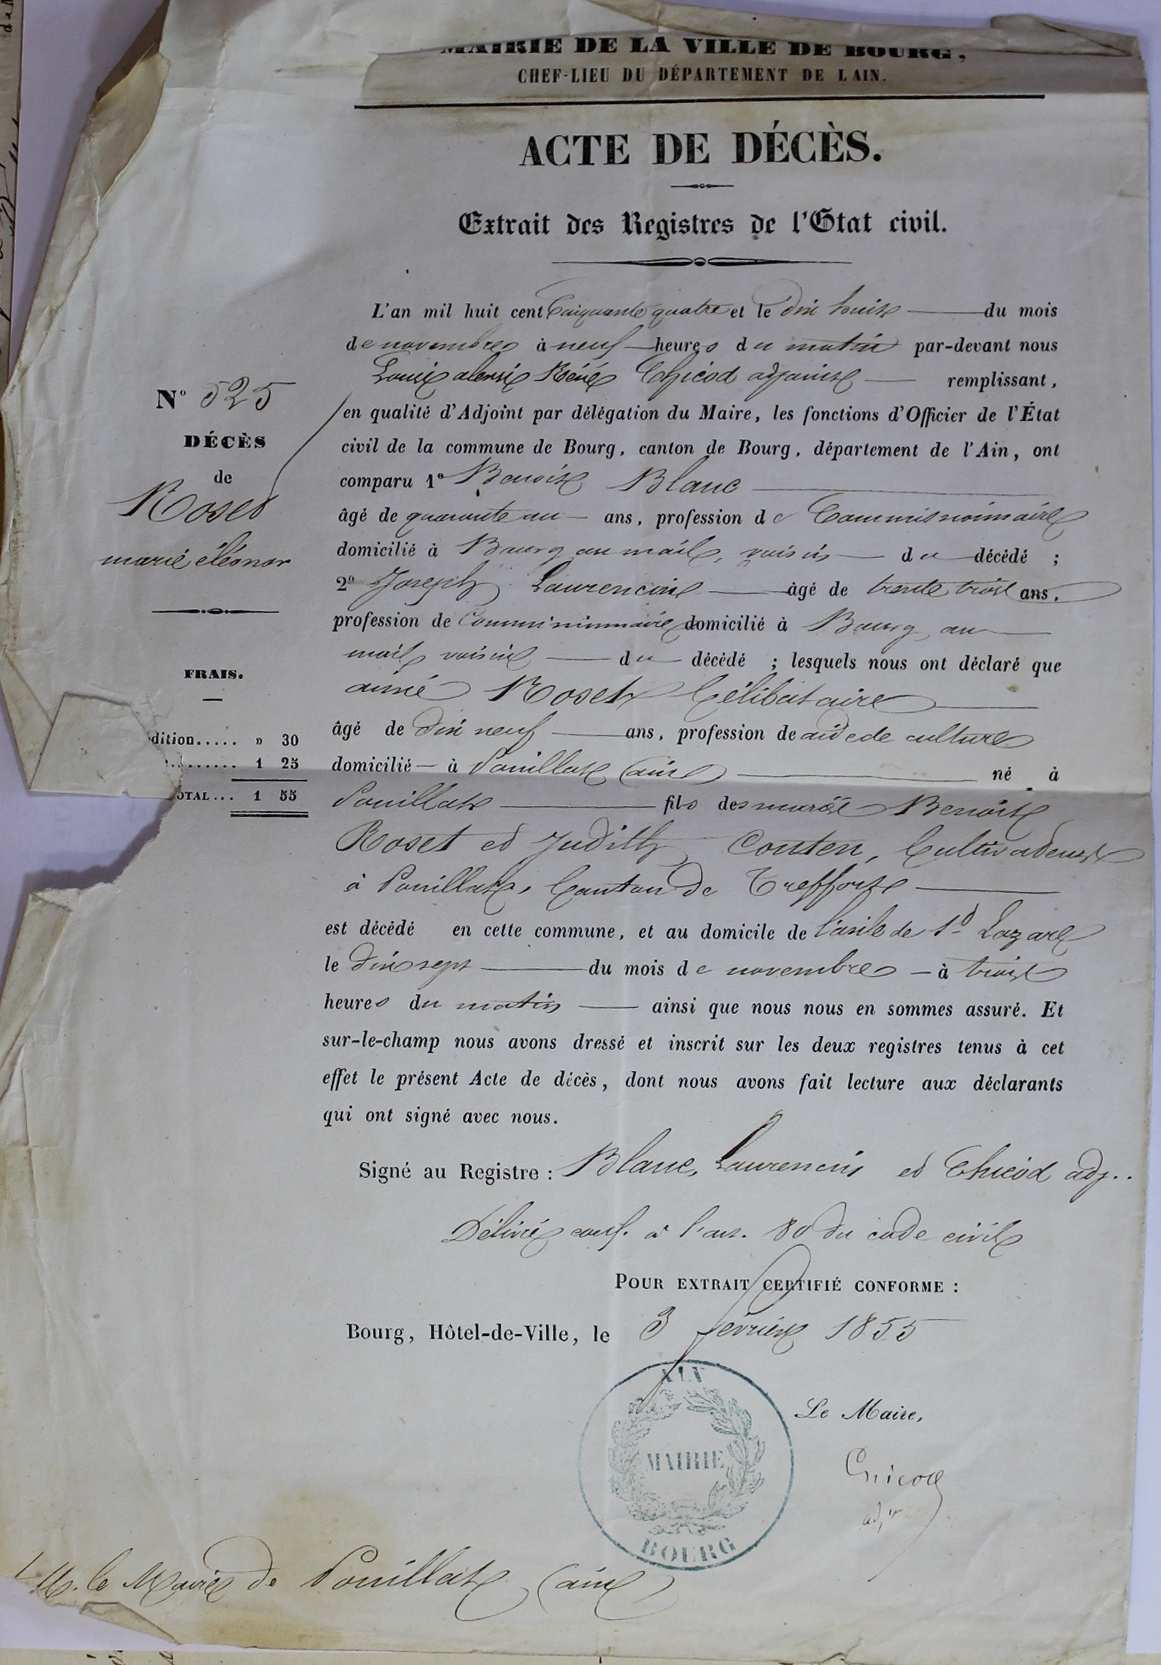 MAIRIE DE LA VILLE DE BOURG,
CHEF-LIEU DU DÉPARTEMENT DE L'AIN.
ACTE DE DÉCÈS.
Extrait des Registres de l'Etat civil.
L'an mil huit cent Cinquante quatre et le dix huit du mois
de novembre à neuf heures du matin par-devant nous
Louis René Chicod adjoint remplissant,
en qualité d'Adjoint par délégation du Maire, les fonctions d'Officier de l'État
civil de la commune de Bourg, canton de Bourg, département de l'Ain, ont
comparu 1º Benoit Blanc
âgé de quarante un ans, profession de Commissionnaire
domicilié à Bourg au mail, voisin du décédé ;
2º Joseph Laurencin âgé de trente trois ans,
profession de Commissionnaire domicilié à Bourg au
mail voisin du décédé ; lesquels nous ont déclaré que
aimé Roset Célibataire
âgé de dix neuf ans, profession de aide de culture
domicilié à Pouillat (ain) né à
Pouillat fils de Benoit
Roset et Judith Couten, Cultivateurs
à Pouillat, Canton de Treffort
est décédé en cette commune, et au domicile de l'asile de St Lazare
le dix sept du mois de novembre à trois
heures du matin ainsi que nous nous en sommes assuré. Et
sur-le-champ nous avons dressé et inscrit sur les deux registres tenus à cet
effet le présent Acte de décès, dont nous avons fait lecture aux déclarants
qui ont signé avec nous.
Signé au Registre : Blanc, Laurencin et Chicod adj..
Délivré conf. à l'art. 80 du code civil
POUR EXTRAIT CERTIFIÉ CONFORME :
Bourg, Hôtel-de-Ville, le 3 février 1855
Le Maire,
Chicod
adj
MAIRIE
BOURG
M. le Maire de Pouillat (ain)
Nº 525
DÉCÈS
de
Roset
marie éléonor
FRAIS.
dition..... » 30
......... 1 25
OTAL... 1 55